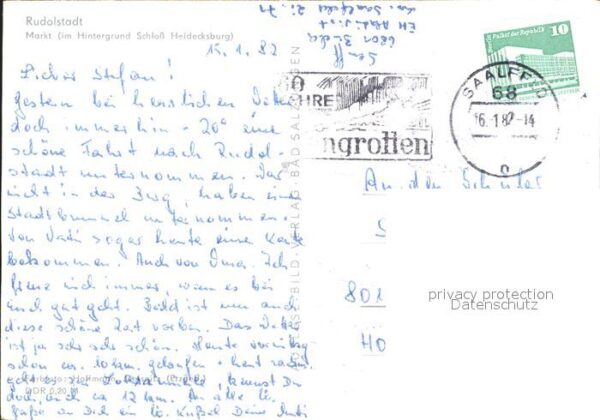 Rudolstadt
Markt (im Hintergrund Schloß Heidecksburg)
15.1.82
Lieber Stefan!
Gestern bei herrlichem Wetter
doch immerhin - 20° eine
schöne Fahrt nach Rudol-
stadt unternommen. Zwar
nicht in der Burg, haben einen
Stadtbummel unternommen.
Von Vati sogar heute eine Karte
bekommen. Auch von Oma. Ich
freue mich immer, wenn es bei
euch gut geht. Bald ist nun auch
diese schöne Zeit vorbei. Das Wetter
ist ja sehr sehr schön. Heute vormittag
schon ca. 10 km gelaufen
geht es zum kannst Du
doch, auch ca 12 km. An alle
Grüße an Dich ein Deine
DDR 0,20 M
BILD-VERLAG BAD SALZUNGEN
JAHRE
ngrotten
SAALFELD
68
16.-1.82-14
Palast der Republik
10
DDR
An den Schüler
S
801
HO
privacy protection
Datenschutz